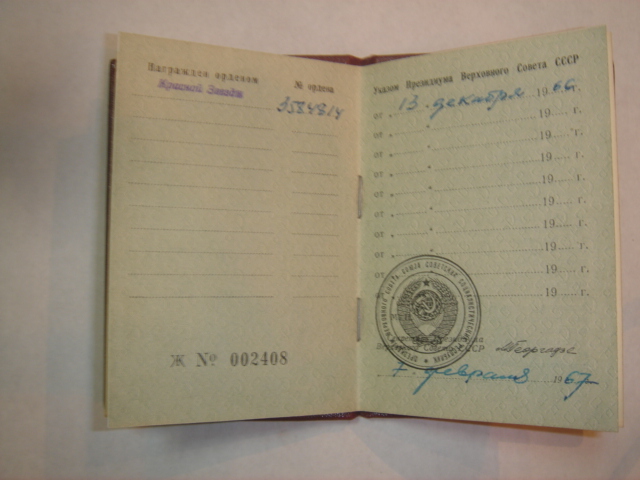 Награжден орденом
Красной Звезды
№ ордена
3584814
Ж № 002408
Указом Президиума Верховного Совета СССР
от „ 13 „ декабря 1966 г.
от „ „ 19 г.
от „ „ 19 г.
от „ „ 19 г.
от „ „ 19 г.
от „ „ 19 г.
от „ „ 19 г.
от „ „ 19 г.
от „ „ 19 г.
ПРЕЗИДИУМ ВЕРХОВНОГО СОВЕТА СОЮЗА СОВЕТСКИХ СОЦИАЛИСТИЧЕСКИХ РЕСПУБЛИК
Верховного Совета СССР
7 февраля 1967 г.